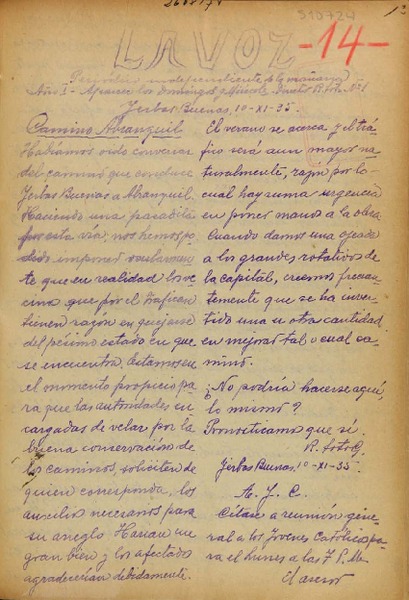 510724
13
LA VOZ -14-
Periódico independiente de la mañana
Año I - Aparece los Domingos y Director R. Soto Nº 1
Yerbas Buenas, 10-XI-35.
Camino Abranquil
Habíamos oído conversar
del camino que conduce
Yerbas Buenas a Abranquil.
Haciendo una paradita
por esta vía, nos hemos po-
dido imponer ocularmen-
te que en realidad los ve-
cinos que por él trafican
tienen razón en quejarse
del pésimo estado en que
se encuentra. Estamos en
el momento propicio pa-
ra que las autoridades en
cargadas de velar por la
buena conservación de
los caminos soliciten de
quien corresponda, los
auxilios necesarios para
su arreglo. Harían un
gran bien y los afectados
agradecerían debidamente.
El verano se acerca y el trá-
fico será aun mayor na-
turalmente, razón por lo
cual hay suma urgencia
en poner manos a la obra.
Cuando damos una ojeada
a los grandes rotativos de
la capital, leemos frecuen-
temente que se ha inver-
tido una u otra cantidad
en mejorar tal o cual ca-
mino.
¿No podría hacerse aquí,
lo mismo?
Pronosticamos que si.
R. Soto G.
Yerbas Buenas, 10-XI-35.
A. J. C.
Cítase a reunión gene-
ral a los Jóvenes Católicos pa-
ra el Lunes a las 7 P.M.
El asesor